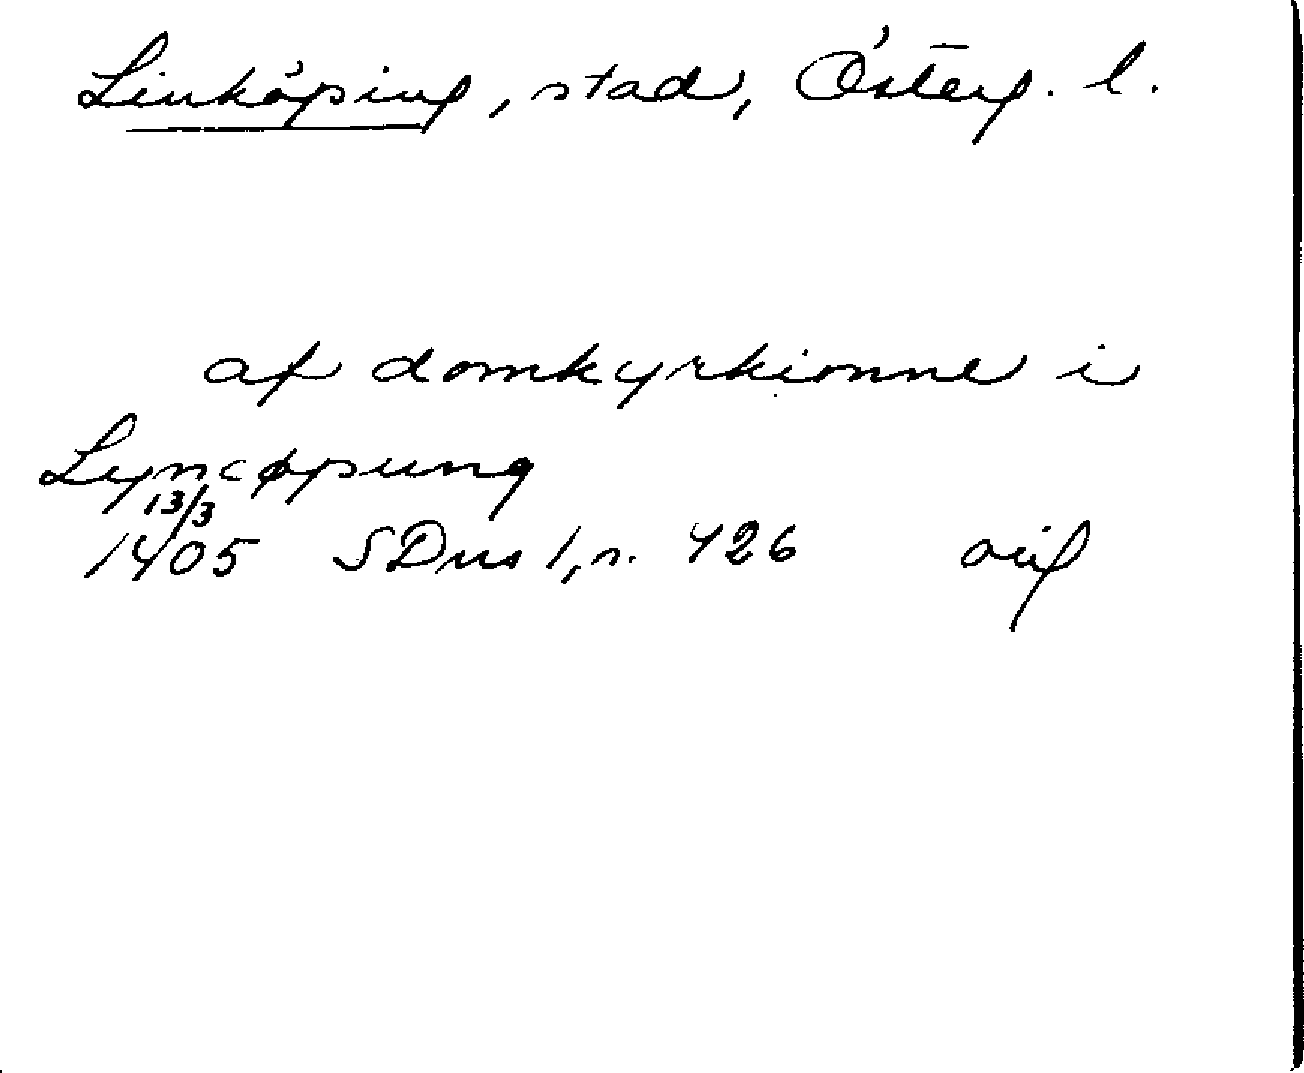 Linköping, stad, Österg. l.
af domkyrkionne i
Lyncøpung
13/3
1405 SDns 1, n. 426 orig